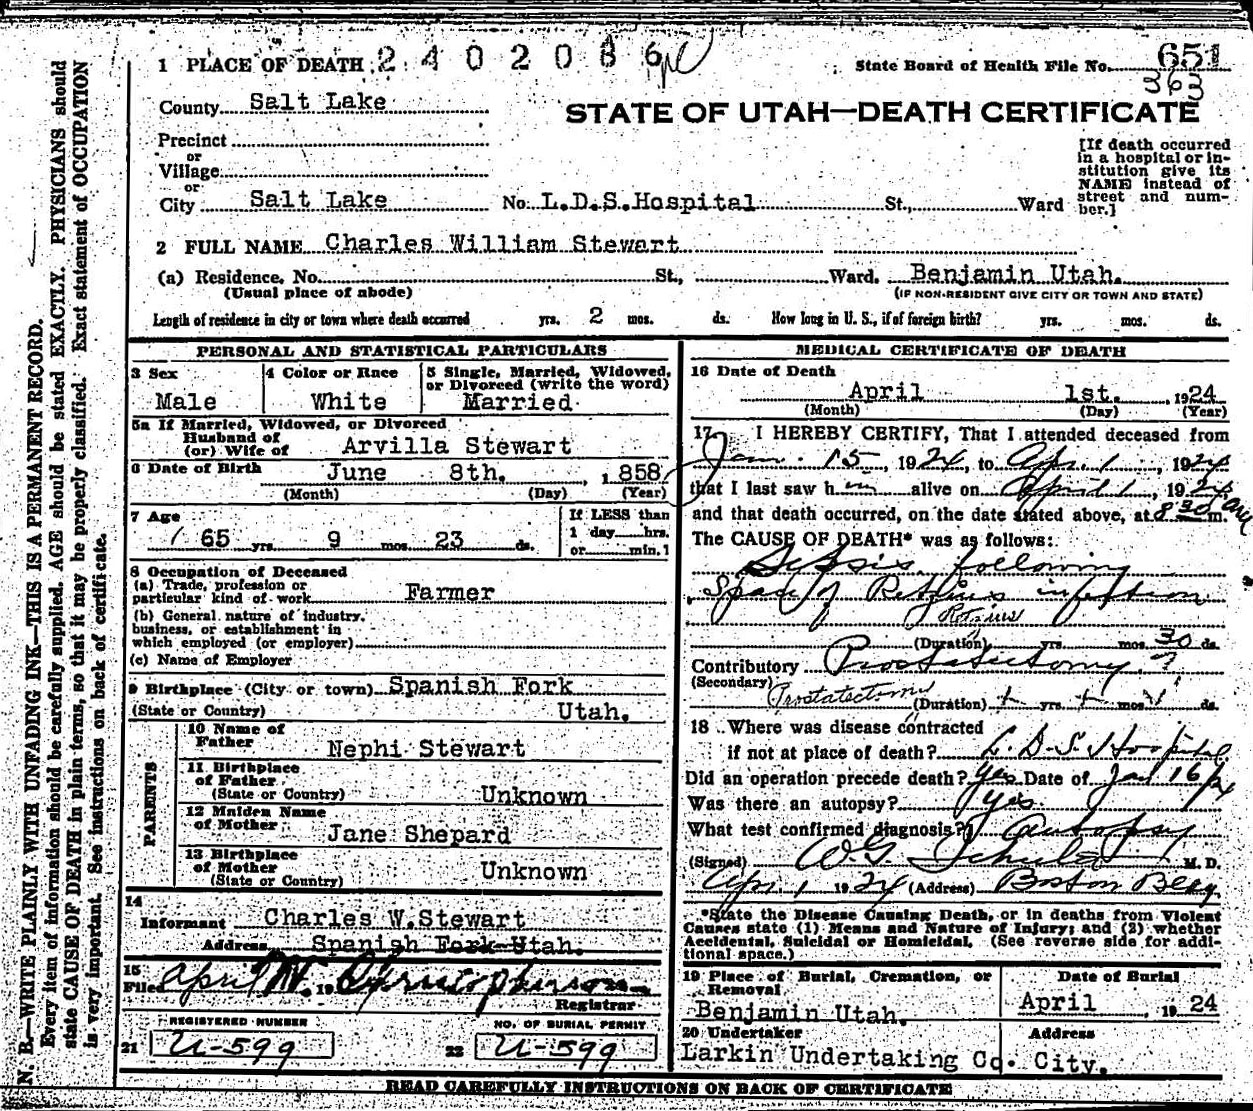 N. B.—WRITE PLAINLY WITH UNFADING INK—THIS IS A PERMANENT RECORD.
Every item of information should be carefully supplied. AGE should be stated EXACTLY. PHYSICIANS should
state CAUSE OF DEATH in plain terms, so that it may be properly classified. Exact statement of OCCUPATION
is very important. See instructions on back of certificate.
1 PLACE OF DEATH 2402086
State Board of Health File No. 651
363
County Salt Lake
STATE OF UTAH—DEATH CERTIFICATE
Precinct
or
Village
or
City Salt Lake No. L.D.S.Hospital St., Ward
[If death occurred
in a hospital or in-
stitution give its
NAME instead of
street and num-
ber.]
2 FULL NAME Charles William Stewart
(a) Residence, No. St., Ward. Benjamin Utah.
(Usual place of abode) (IF NON-RESIDENT GIVE CITY OR TOWN AND STATE)
Length of residence in city or town where death occurred yrs. 2 mos. ds. How long in U. S., if of foreign birth? yrs. mos. ds.
PERSONAL AND STATISTICAL PARTICULARS
3 Sex 4 Color or Race 5 Single, Married, Widowed,
or Divorced (write the word)
Male White Married
5a If Married, Widowed, or Divorced
Husband of
(or) Wife of Arvilla Stewart
6 Date of Birth June 8th. , 1 858
(Month) (Day) (Year)
7 Age If LESS than
1 day hrs.
or min.
65 yrs. 9 mos. 23 ds.
8 Occupation of Deceased
(a) Trade, profession or
particular kind of work Farmer
(b) General nature of industry,
business, or establishment in
which employed (or employer)
(c) Name of Employer
9 Birthplace (City or town) Spanish Fork
(State or Country) Utah.
PARENTS
10 Name of
Father Nephi Stewart
11 Birthplace
of Father
(State or Country) Unknown
12 Maiden Name
of Mother Jane Shepard
13 Birthplace
of Mother
(State or Country) Unknown
14
Informant Charles W.Stewart
Address Spanish Fork Utah.
15
Filed April 19
Registrar
REGISTERED NUMBER NO. OF BURIAL PERMIT
21 U-599 22 U-599
MEDICAL CERTIFICATE OF DEATH
16 Date of Death
April 1st. , 1924
(Month) (Day) (Year)
17 I HEREBY CERTIFY, That I attended deceased from
Jan. 15, 1924, to Apr. 1, 1924
that I last saw him alive on April 1, 1924
and that death occurred, on the date stated above, at 8 30 am.
The CAUSE OF DEATH* was as follows:
Sepsis following
Space of Retzius infection
Retzius
(Duration) yrs. mos. 30 ds.
Contributory Prostatectomy ?
(Secondary)
Prostatectomy (Duration) yrs. mos. ds.
18 Where was disease contracted
if not at place of death? L. D. S. Hospital
Did an operation precede death? Yes Date of Jan 16/24
Was there an autopsy? yes.
What test confirmed diagnosis? Autopsy
(Signed) W.G. Schulte M. D.
Apr. 1 1924 (Address) Boston Bldg
*State the Disease Causing Death, or in deaths from Violent
Causes state (1) Means and Nature of Injury; and (2) whether
Accidental, Suicidal or Homicidal. (See reverse side for addi-
tional space.)
19 Place of Burial, Cremation, or
Removal Date of Burial
Benjamin Utah. April , 1924
20 Undertaker Address
Larkin Undertaking Co. City.
READ CAREFULLY INSTRUCTIONS ON BACK OF CERTIFICATE